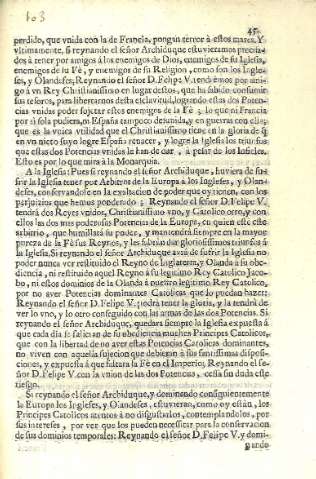 103
45
perdido, que vnida con la de Francia, pongan terror à estos mares. Y
vltimamente, si reynando el señor Archiduque estuvieramos precisa-
dos à tener por amigos à los enemigos de Dios, enemigos de su Iglesia,
enemigos de su Fè, y enemigos de su Religion, como son los Ingle-
ses, y Olandeses; Reynando el señor D. Felipe V. tendremos por ami-
go à vn Rey Christianissimo en lugar destos, que ha sabido consumir
sus tesoros, para libertarnos desta esclavitud, logrando estas dos Poten-
cias vnidas poder sojetar estos enemigos de la Fè; lo que ni Francia
por si sola pudiera, ni España tampoco desunida, y en guerras con ella;
que es la vnica vtilidad que el Christianissimo tiene en la gloria de q̃
en vn nieto suyo logre España renacer, y logre la Iglesia los triunfos
que estas dos Potencias vnidas le han de dar, à pesar de los Infieles.
Esto es por lo que mira à la Monarquia.
A la Iglesia: Pues si reynando el señor Archiduque, huviera de su-
frir la Iglesia tener por Arbitros de la Europa à los Ingleses, y Olan-
deses, conservandose en la exaltacion de poder que oy tienen, con los
perjuizios que hemos ponderado; Reynando el señor D. Felipe V.
tendrà dos Reyes vnidos, Christianissimo vno, y Catolico otro, y con
ellos las dos mas poderosas Potencias de la Europa, en quien estè este
arbitrio, que humillarà su poder, y mantendrà siempre en la mayor
pureza de la Fè sus Reynos, y les sabràn dar gloriosissimos triunfos à
la Iglesia. Si reynando el señor Archiduque avia de sufrir la Iglesia no
poder nunca ver restituido el Reyno de Inglaterra, y Olanda à su obe-
diencia, ni restituido aquel Reyno à su legitimo Rey Catolico Jaco-
bo, ni estos dominios de la Olanda à nuestro legitimo Rey Catolico,
por no aver Potencias dominantes Catolicas que lo puedan hazer;
Reynando el señor D. Felipe V. podrà tener la gloria, y la tendrà de
ver lo vno, y lo otro conseguido con las armas de las dos Potencias. Si
reynando el señor Archiduque, quedara siempre la Iglesia expuesta à
que cada dia se salieran de su obediencia muchos Principes Catolicos,
que con la libertad de no aver estas Potencias Catolicas dominantes,
no viven con aquella sujecion que debieran à sus santissimas disposi-
ciones, y expuesta à que faltara la Fè en el Imperio; Reynando el se-
ñor D. Felipe V. con la vnion de las dos Potencias, cessa sin duda este
riesgo.
Si reynando el señor Archiduque, y dominando consiguientemente
la Europa los Ingleses, y Olandeses, estuvieran, como oy estàn, los
Principes Catolicos atentos à no disgustarlos, contemplandolos, por
sus intereses, por ver que los pueden necessitar para la conservacion
de sus dominios temporales: Reynando el señor D. Felipe V. y domi-
nando